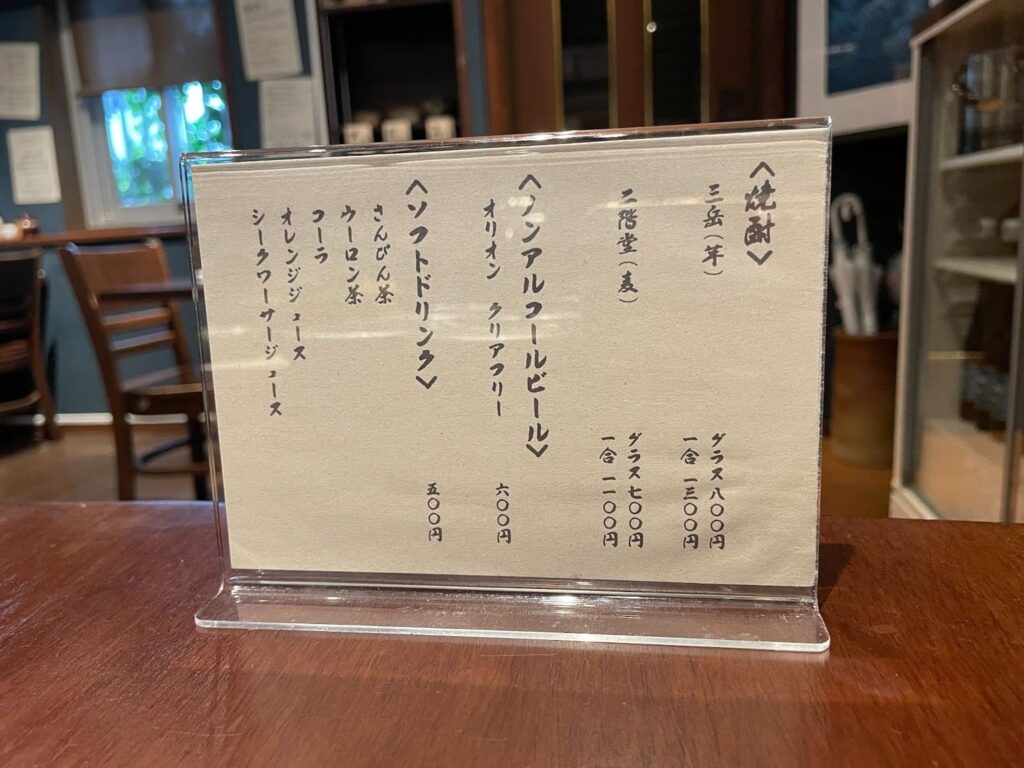 〈焼酎〉
三岳（芋）
グラス 八〇〇円
一合 一三〇〇円
二階堂（麦）
グラス 七〇〇円
一合 一一〇〇円
〈ノンアルコールビール〉
オリオン クリアフリー 六〇〇円
〈ソフトドリンク〉 五〇〇円
さんぴん茶
ウーロン茶
コーラ
オレンジジュース
シークワーサージュース